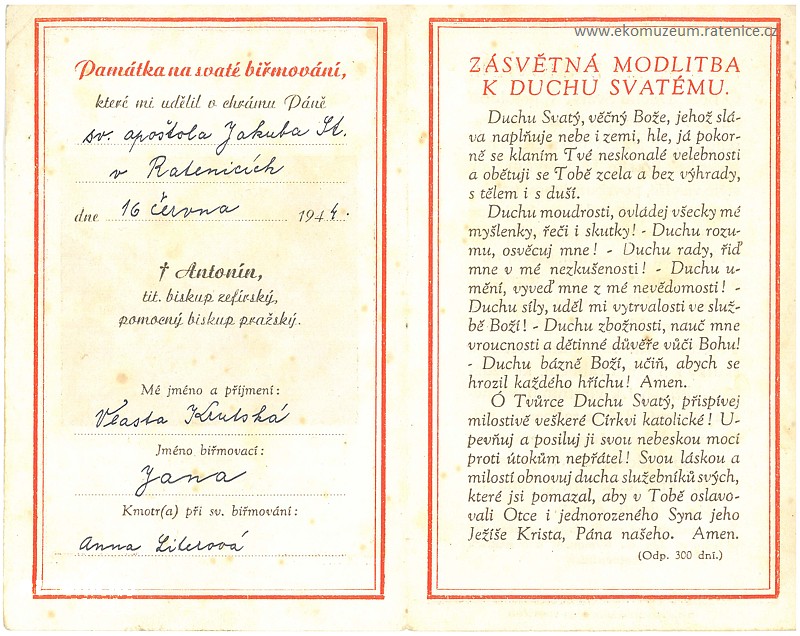 www.ekomuzeum.ratenice.cz
Památka na svaté biřmování,
které mi udělil v chrámu Páně
sv. apoštola Jakuba St.
v Ratenicích
dne 16 června 1944.
† Antonín,
tit. biskup zefirský,
pomocný biskup pražský.
Mé jméno a příjmení:
Vlasta
Jméno biřmovací:
Jana
Kmotr(a) při sv. biřmování:
Anna
ZÁSVĚTNÁ MODLITBA
K DUCHU SVATÉMU.
Duchu Svatý, věčný Bože, jehož slá-
va naplňuje nebe i zemi, hle, já pokor-
ně se klaním Tvé neskonalé velebnosti
a obětuji se Tobě zcela a bez výhrady,
s tělem i s duší.
Duchu moudrosti, ovládej všecky mé
myšlenky, řeči i skutky! - Duchu rozu-
mu, osvěcuj mne! - Duchu rady, řiď
mne v mé nezkušenosti! - Duchu u-
mění, vyveď mne z mé nevědomosti! -
Duchu síly, uděl mi vytrvalosti ve služ-
bě Boží! - Duchu zbožnosti, nauč mne
vroucnosti a dětinné důvěře vůči Bohu!
- Duchu bázně Boží, učiň, abych se
hrozil každého hříchu! Amen.
Ó Tvůrce Duchu Svatý, přispívej
milostivě veškeré Církvi katolické! U-
pevňuj a posiluj ji svou nebeskou mocí
proti útokům nepřátel! Svou láskou a
milostí obnovuj ducha služebníků svých,
které jsi pomazal, aby v Tobě oslavo-
vali Otce i jednorozeného Syna jeho
Ježíše Krista, Pána našeho. Amen.
(Odp. 300 dní.)